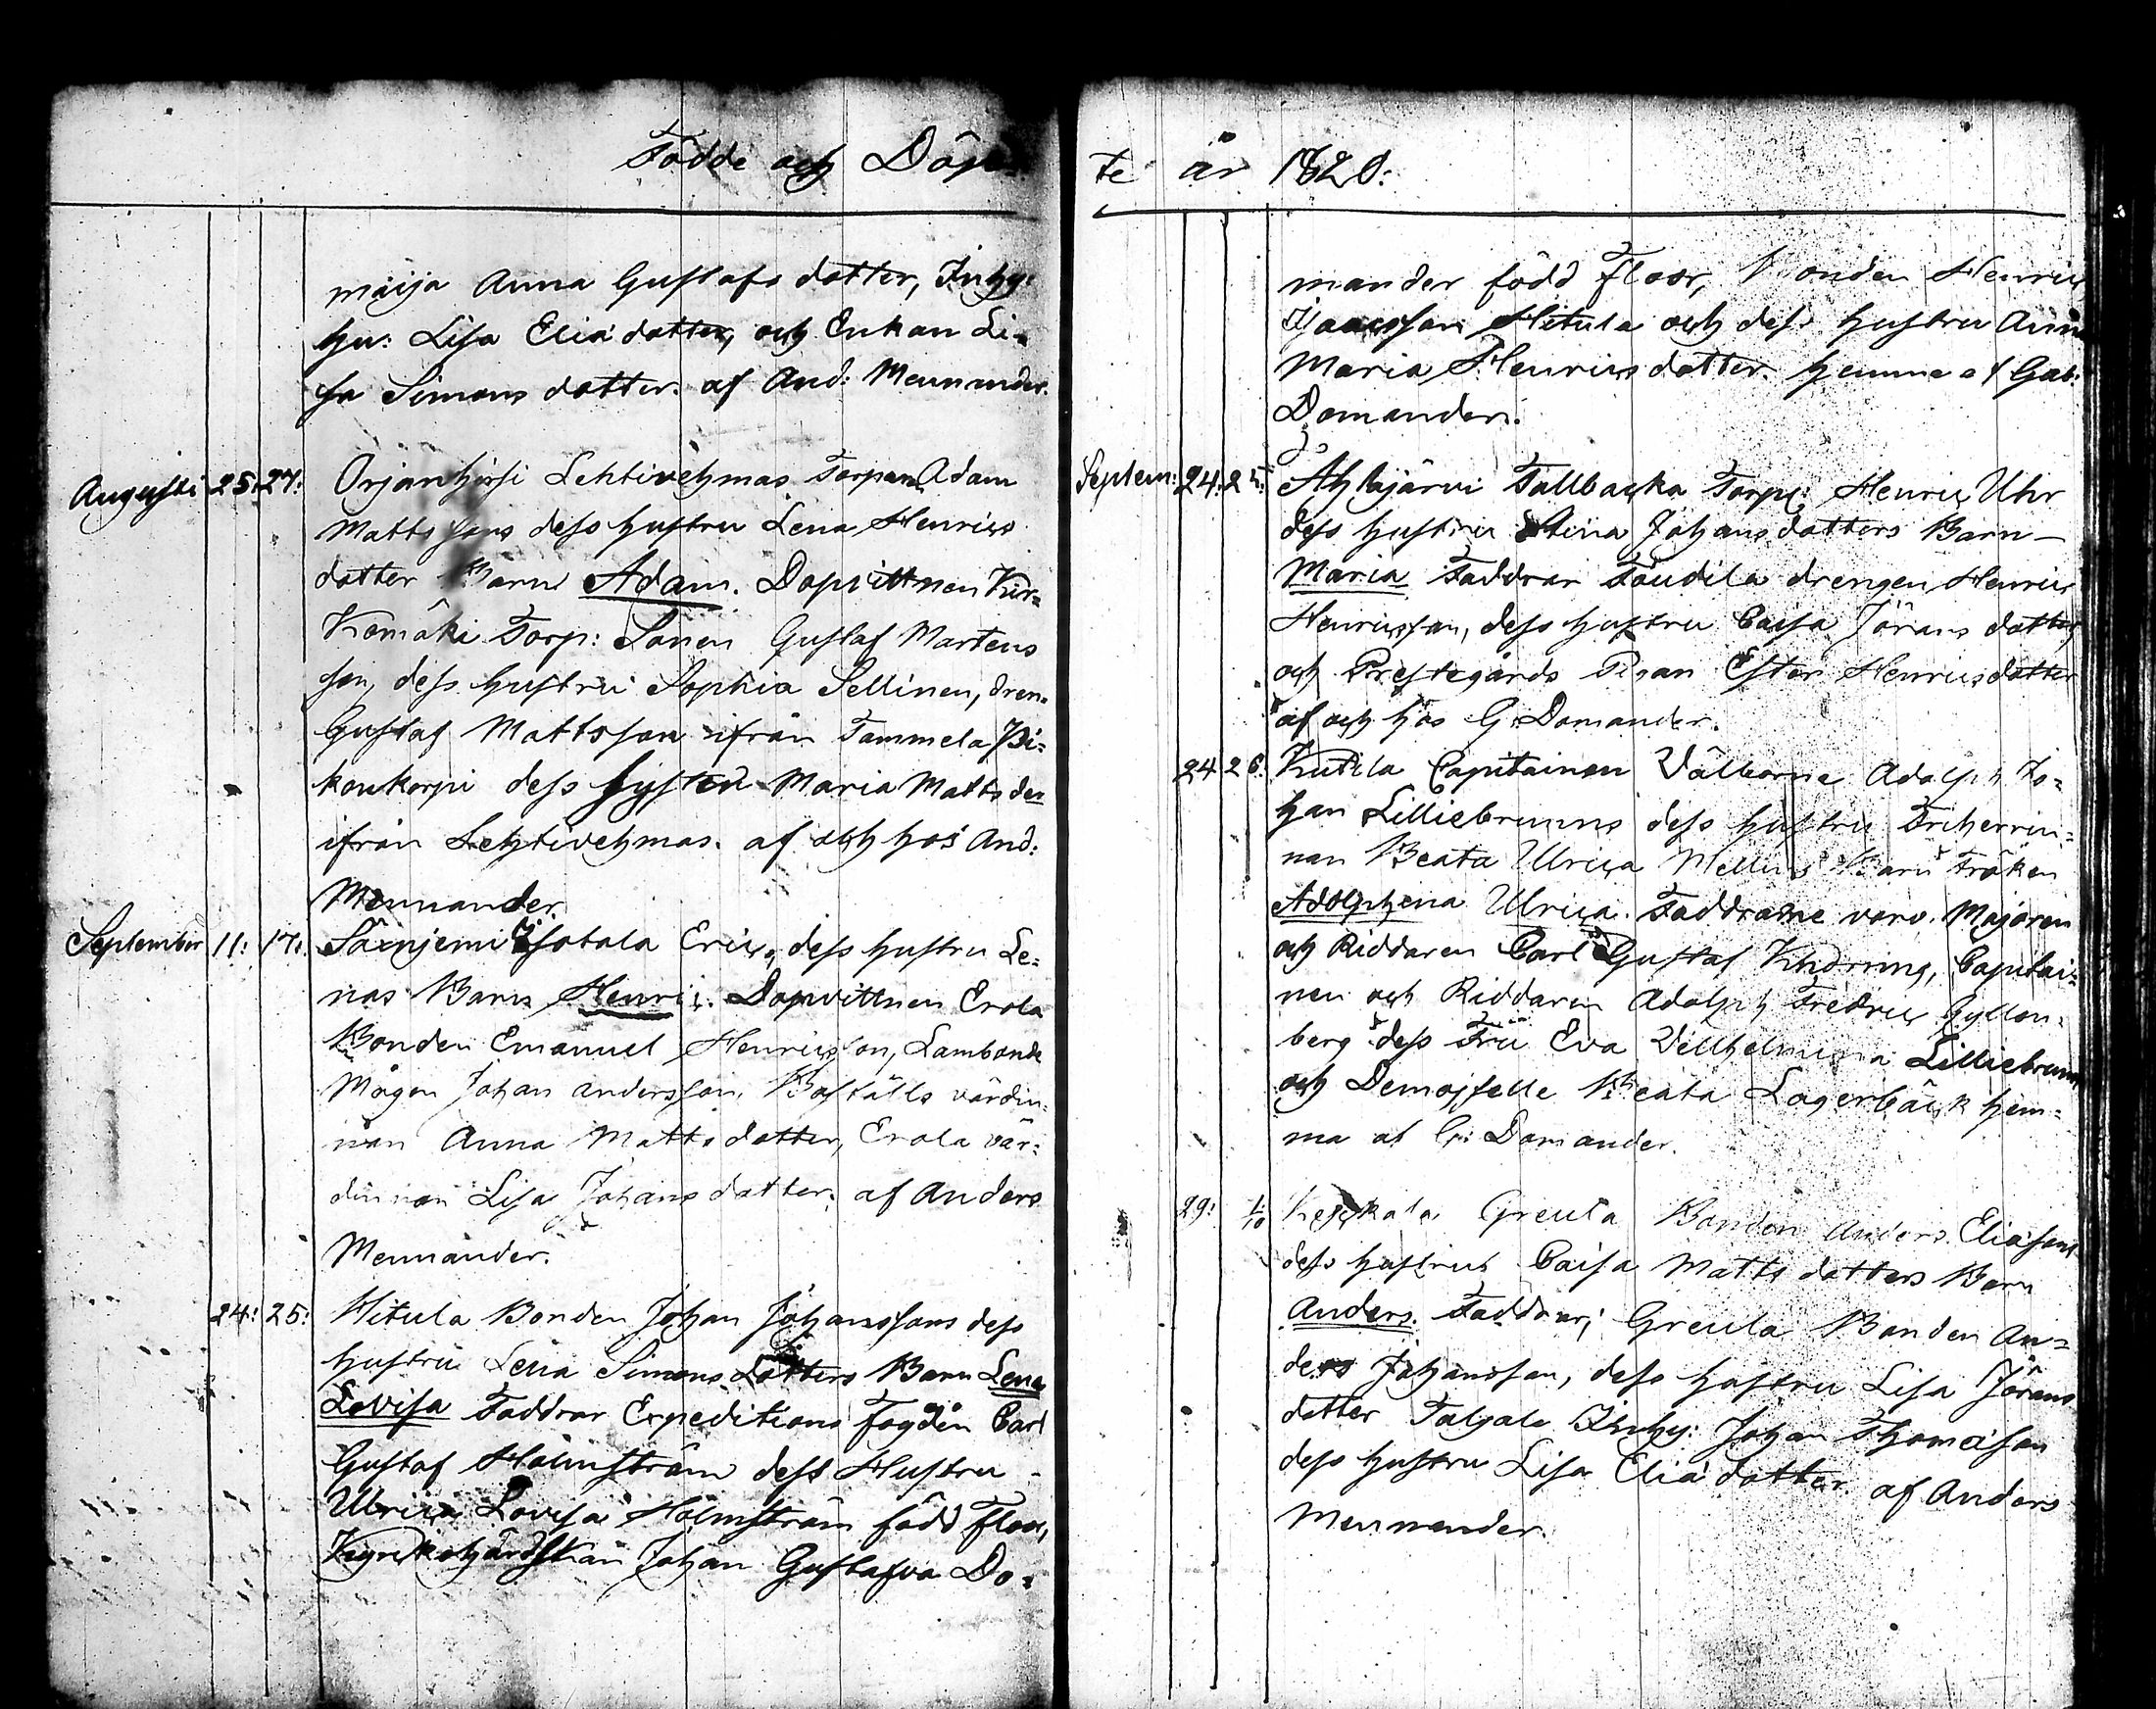 Födde och Döp=
maija Anna Gustafs dotter, Inhy:
hu: Lisa Elia dotter, och Enkan Li=
sa Simons dotter. af And: Mennander.
Augusti 25: 27: Orjanhirsi Lehtivehmas Torparen Adam
Matts sons dess hustru Lena Henrics
dotter Barn Adam. Dopvittnen Kir=
Komäki Torp: Sonen Gustaf Martens
son, dess hustru Sophia Sellinen, dren.
Gustaf Mattsson ifrån Tammela Pi=
konkorpi dess syster Maria Matts der
ifrån Lehtivehmas. af och hos And:
Mennander.
September 11: 17: Särnjemi Isotala Erics, dess hustru Le=
nas Barn Henric. Dopvittnen Erola
Bonden Emanuel Henricsson, Sambonde
Mågen Johan andersson, Boställs värdin=
nan Anna Matts dotter, Erola vär=
dinnan Lisa Johans dotter; af Anders
Mennander.
24: 25: Hitula Bonden Johan Johanssons dess
hustru Lena Simons dotters Barn Lena
Lovisa Faddrar Expeditions Fogden Carl
Gustaf Holmström dess Hustru
Ulrica Lovisa Holmström född Floor,
Johan Gustafva Do=
te år 1820:
mander född Floor, Bonden Henric
Isaacsson Hitula och dess hustru Anna
Maria Henrics dotter. hemma af Gab:
Domander.
Septem: 24: 25: Ahlajärvi Tallbacka Torp: Henric Uhr
dess hustru Stina Johans dotters Barn
Maria Faddrar Toudila drengen Henric
Henricsson, dess hustru Caisa Jörans dotter
och Prestegårds Pigan Ester Henricsdotter
af och hos G: Domander.
24 26: Kutila Capitainen Välborne Adolph Jo=
han Lilliebrunns dess hustru Friherrin=
nan Beata Ulrica Mellins Barn Fröken
Adolphena Ulrica. Faddrarne voro. Majoren
och Riddaren Carl Gustaf Knorring, Capitai=
nen och Riddaren Adolph Fredric Gyllen=
berg dess Fru Eva Villhelmina Lilliebrunn
och Demoiselle Beata Lagerbäck hem=
ma af G: Domander.
29: 1/10 Greula Bonden Anders Eliasons
dess hustrus Caisa Matts dotters Barn
Anders. Faddrar; Greula Bonden An=
ders Johansson, dess hustru Lisa Jörans
dotter Talpala Inhy: Johan Thomasson
dess hustru Lisa Elia dotter af Anders
Mennander.